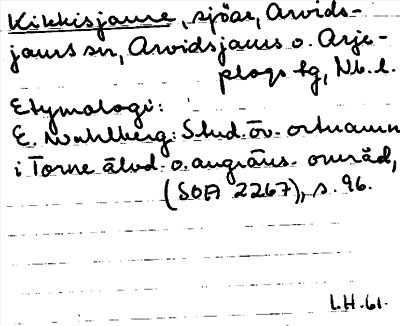 Kikkisjaure, sjöar, Arvids-
jaurs sn, Arvidsjaurs o. Arje-
plogs tg, Nb. l.
Etymologi:
E. Wahlberg: Stud. öv. ortnamn
i Torne älvd. o. angräns. område,
(SOA 2267), s. 96.
I.H. 61.